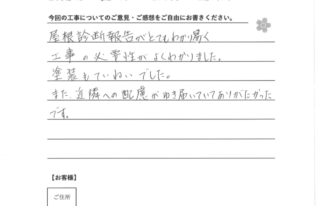 今回の工事についてのご意見・ご感想をご自由にお書きください。
屋根診断報告がとてもわかり易く
工事の必要性がよくわかりました。
塗装もていねいでした。
また近隣への配慮がゆき届いていてありがたかった
です。
【お客様】
ご住所